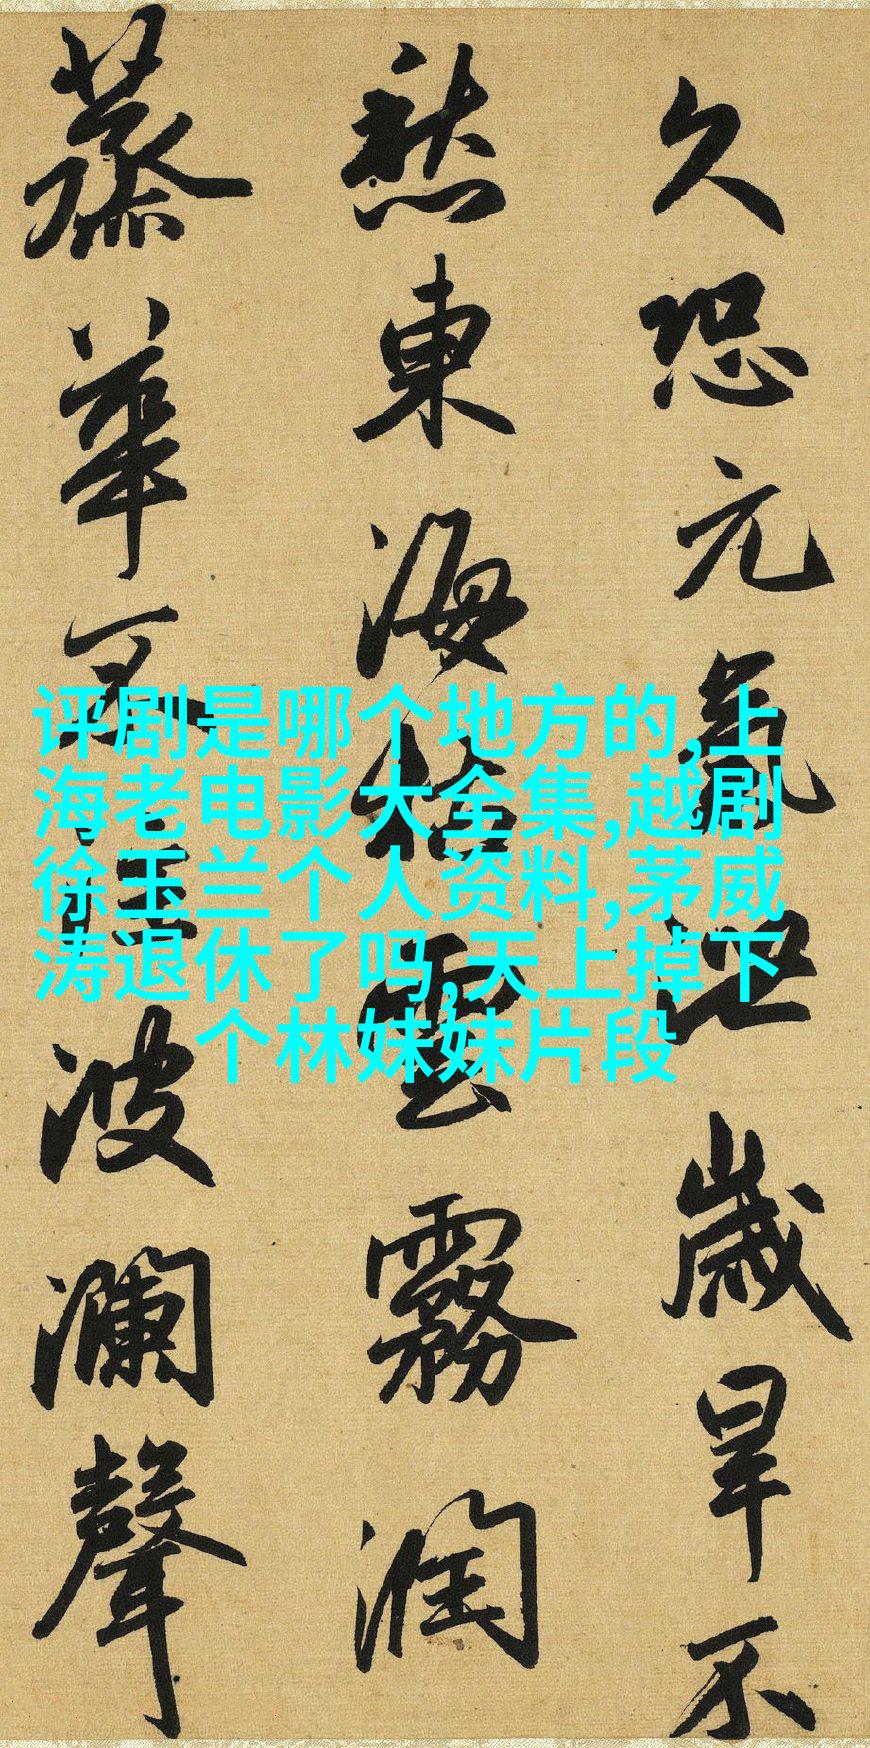 久恐元氣泄歲旱不
愁東海枯雲霧潤
蒸華不注波瀾聲
评剧是哪个地方的,上
海老电影大全集,越剧
徐玉兰个人资料,茅威
涛退休了吗,天上掉下
个林妹妹片段